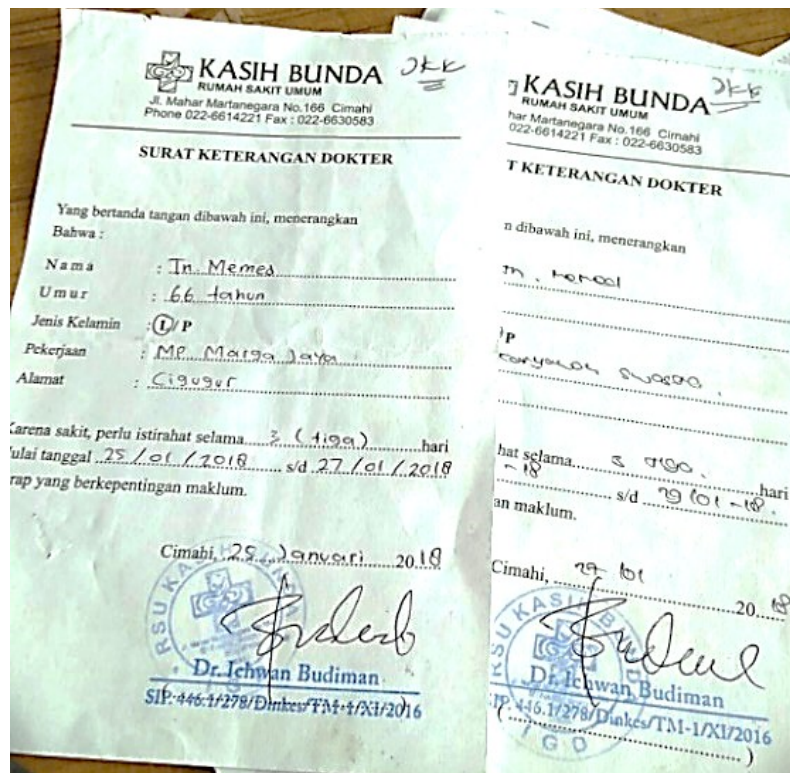 KASIH BUNDA JKK
RUMAH SAKIT UMUM
Jl. Mahar Martanegara No.166 Cimahi
Phone 022-6614221 Fax : 022-6630583
SURAT KETERANGAN DOKTER
Yang bertanda tangan dibawah ini, menerangkan
Bahwa :
Nama : Tn. Memed
Umur : 66 tahun
Jenis Kelamin : L/ P
Pekerjaan : MP. Marga Jaya
Alamat : Cigugur
Karena sakit, perlu istirahat selama 3 (tiga) hari
ulai tanggal 25 / 01 / 2018 s/d 27 / 01 / 2018
rap yang berkepentingan maklum.
Cimahi, 25 Januari 2018
RSU KASIH BUNDA
Dr. Ichwan Budiman
SIP. 446.1/278/Dinkes/TM-1/XI/2016
KASIH BUNDA JKK
RUMAH SAKIT UMUM
har Martanegara No.166 Cimahi
022-6614221 Fax : 022-6630583
T KETERANGAN DOKTER
n dibawah ini, menerangkan
Tn.
P
karyawan swasta
hat selama 3 hari
-18 s/d 29/01-18.
an maklum.
Cimahi, 27 01 2018
RSU KASIH BUNDA
Dr. Ichwan Budiman
SIP. 446.1/278/Dinkes/TM-1/XI/2016
( )
IGD